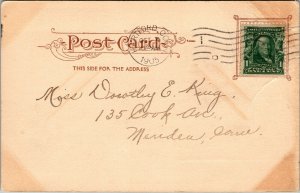 Post Card
THIS SIDE FOR THE ADDRESS
1905
Miss Dorothy E. King.
135 Cook Ave.
Meriden, Conn.